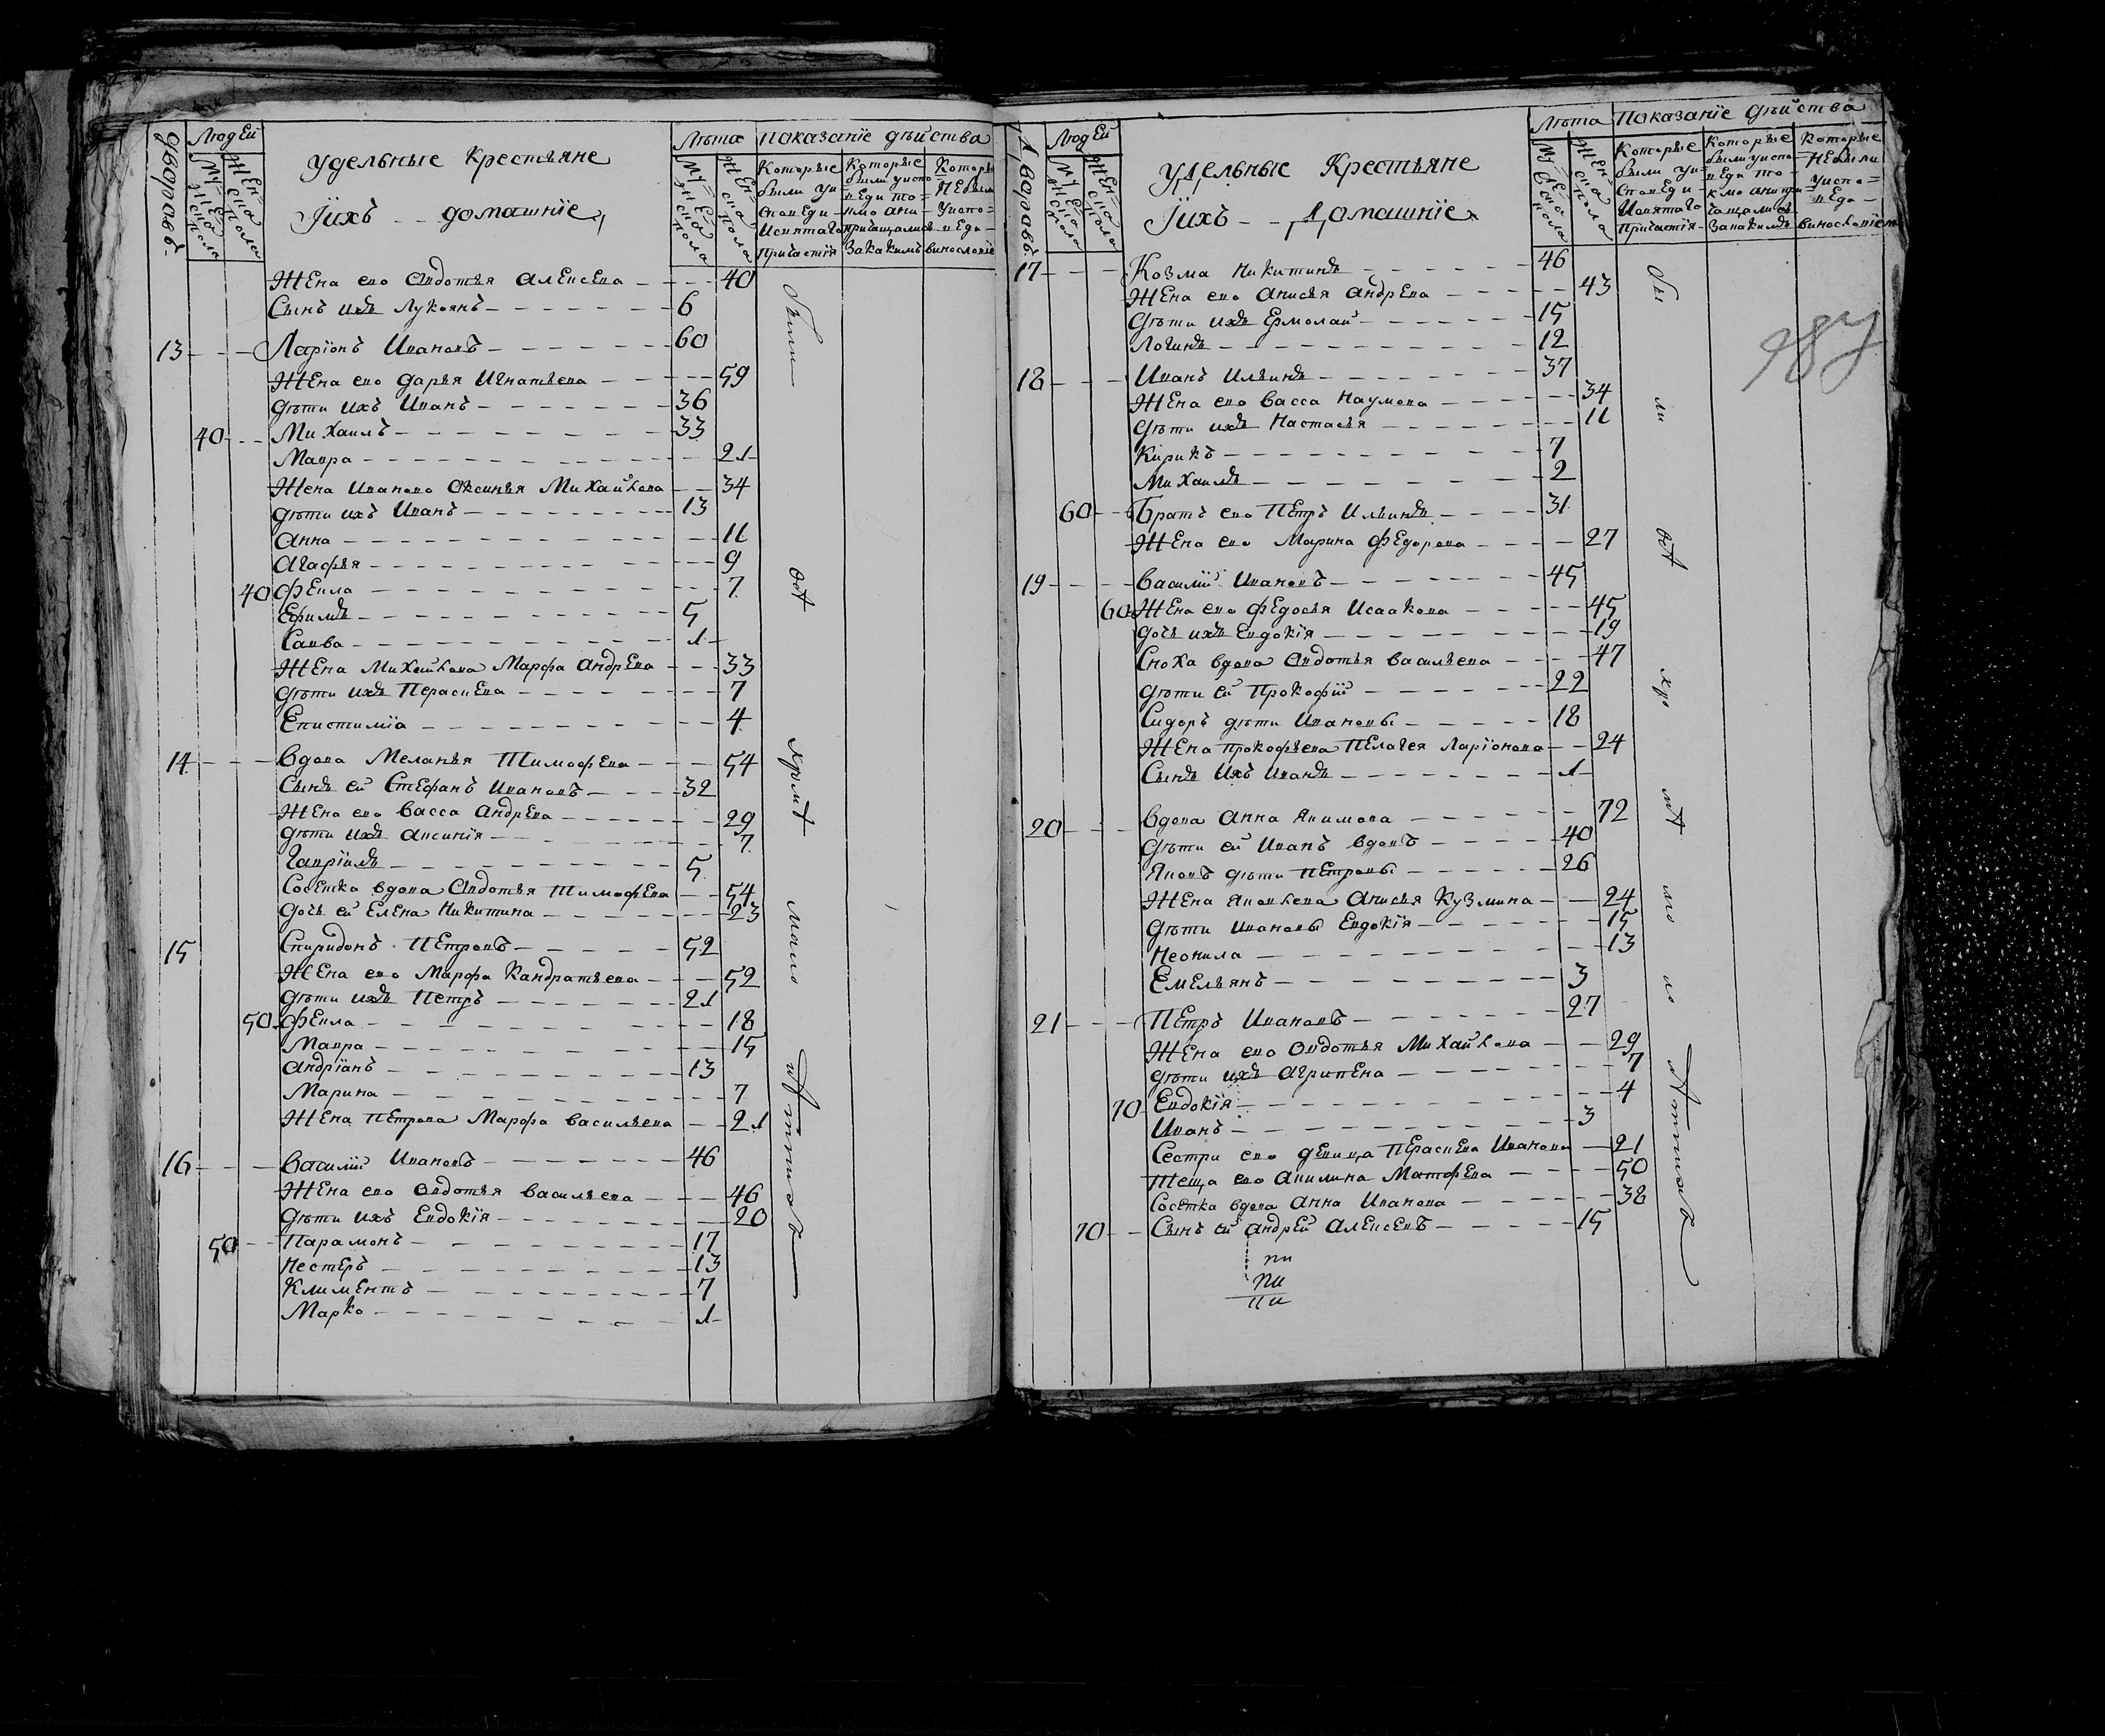 дворовъ
Людей
мужеска пола
женска пола
Удельные Крестьяне
Ӏихъ домашнїе
Лѣта
мужеска пола
женска пола
показанїе дѣйства
Которые были уисповеди исвятаго причастїя
Которые были уисповеди токмо анипричащались закакимъ
Которые небыли уисповеди
винословїе
Жена ево Авдотья Алексева 40
Сынъ ихъ Лукоянъ 6
13 Ларїонъ Ивановъ 60
Жена ево дарья Игнатьева 59
дѣти ихъ Иванъ 36
40 Михаилъ 33
Мавра 21
Жена Иванова Оксинья Михайлова 34
дѣти ихъ Иванъ 13
Анна 11
Агафья 9
40 Фекла 7
Ефимъ 5
Савва 1
Жена Михайлова Марфа Андрева 33
дѣти ихъ Пераскева 7
Епистимїа 4
14 Вдова Меланья Тимофева 54
Сынъ ей Стефанъ Ивановъ 32
Жена ево Васса Андрева 29
дѣти ихъ Аксинїя 7
Гаврїилъ 5
Соседка вдова Авдотья Тимофева 54
дочь ей Елена Никитина 23
15 Спиридонъ Петровъ 52
Жена ево Марфа Кандратьева 52
дѣти ихъ Петръ 21
50 Фекла 18
Мавра 15
Андрїанъ 13
Марина 7
Жена Петрова Марфа Васильева 21
16 Василїй Ивановъ 46
Жена ево Овдотья Васильева 46
дѣти ихъ Евдокїя 20
50 Парамонъ 17
Нестеръ 13
Климентъ 7
Марко 1
были
дворовъ
Людей
мужеска пола
женска пола
Удельные Крестьяне
Ӏихъ домашнїе
Лѣта
мужеска пола
женска пола
Показанїе дѣйства
Которые были уисповеди исвятаго причастїя
Которые были уисповеди токмо анипричащались закакимъ
Которые небыли уисповеди
винословїем
187
17 Козма Никитинъ 46
Жена ево Анисья Андрева 43
дѣти ихъ Ермолай 15
Логинъ 12
18 Иванъ Ильинъ 37
Жена ево Васса Наумова 34
дѣти ихъ Настасья 11
Кирикъ 7
Михаилъ 2
60 Братъ ево Петръ Ильинъ 31
Жена ево Марина Федорова 27
19 Василїй Ивановъ 45
60 Жена ево Федосья Исаакова 45
дочь ихъ Евдокїя 19
Сноха вдова Овдотья Васильева 47
дѣти ей Прокофїй 22
Сидоръ дѣти Ивановы 18
Жена Прокофьева Пелагея Ларїонова 24
Сынъ ихъ Иванъ 1
20 Вдова Анна Якимова 72
дѣти ей Иванъ вдовъ 40
Яковъ дѣти Петровы 26
Жена Яковлева Анисья Кузмина 24
дѣти Ивановы Евдокїя 15
Неонила 13
Емельянъ 3
21 Петръ Ивановъ 27
Жена ево Овдотья Михайлова 29
дѣти ихъ Агрипена 7
70 Евдокїя 4
Иванъ 3
Сестри ево девица Пераскева Иванова 21
Теща ево Акилина Матфева 50
Соседка вдова Анна Иванова 38
70 Сынъ ей Андрей Алексеевъ 15
бы
ли